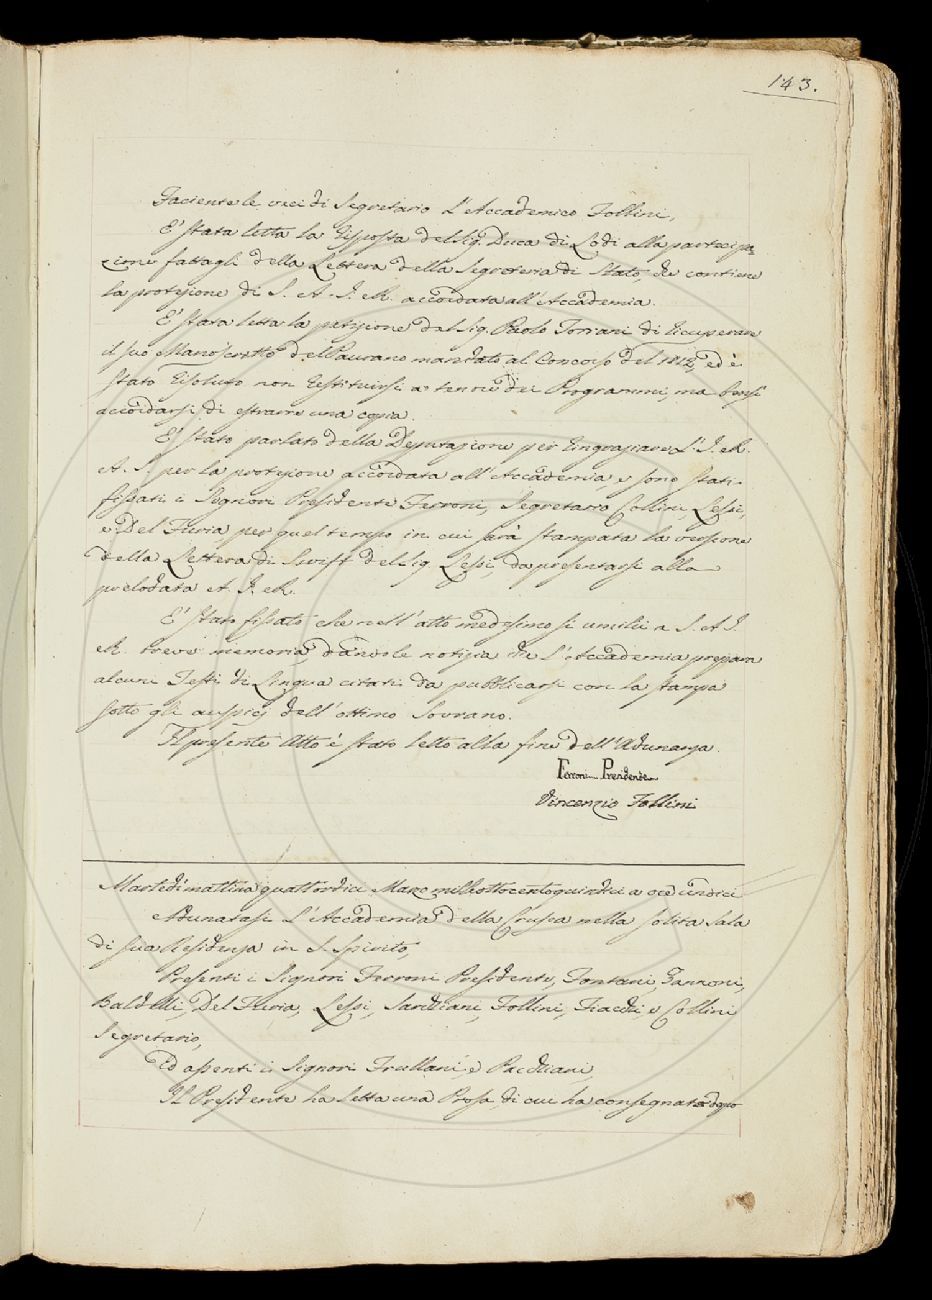 143.
Faciente le veci di Segretario l'Accademico Follini,
E' stata letta la risposta del Sig. Duca di Lodi alla partecipa=
zione fattagli della Lettera della Segreteria di Stato, che contiene
la protezione di S. A. I. R. accordata all'Accademia.
E' stata letta la petizione del Sig. Paolo Torriani di ricuperare
il suo Manoscritto del mandato al Concorso del 1812, ed è
stato risoluto non restituirsi a tenore dei Programmi, ma bensì
accordarsi di estrarre una copia.
E' stato parlato della Deputazione per ringraziare l'I. R.
A. S. per la protezione accordata all'Accademia, e sono stati
fissati i Signori Presidente Ferroni, Segretario Collini, Lessi,
e Del Furia, per quel tempo in cui sarà stampata la versione
della Lettera di Swift del Sig. Lessi, da presentarsi alla
prelodata A. I. R.
E' stato fissato che nell'atto medesimo si umilii a S. A. I.
R. breve memoria dandole notizia che l'Accademia prepara
alcuni Testi di Lingua citati da pubblicarsi con la stampa
sotto gli auspicj dell'ottimo Sovrano.
Il presente Atto è stato letto alla fine dell'Adunanza.
Ferroni Presidente
Vincenzio Follini
Martedì mattina quattordici Marzo milleottocentoquindici a ore undici
Adunatasi l'Accademia della Crusca nella solita Sala
di sua Residenza in S. Spirito,
Presenti i Signori Ferroni Presidente, Fontani, Zannoni,
Baldelli, Del Furia, Lessi, Sarchiani, Follini, Fiacchi, e Collini
Segretario,
Ed assenti i Signori Frullani, e Pacchiani,
Il Presidente ha letta una Prosa, di cui ha consegnato dopo